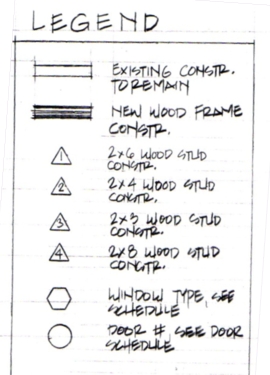 LEGEND
EXISTING CONSTR.
TO REMAIN
NEW WOOD FRAME
CONSTR.
1 2x6 WOOD STUD
CONSTR.
2 2x4 WOOD STUD
CONSTR.
3 2x3 WOOD STUD
CONSTR.
4 2x8 WOOD STUD
CONSTR.
WINDOW TYPE, SEE
SCHEDULE
DOOR #, SEE DOOR
SCHEDULE